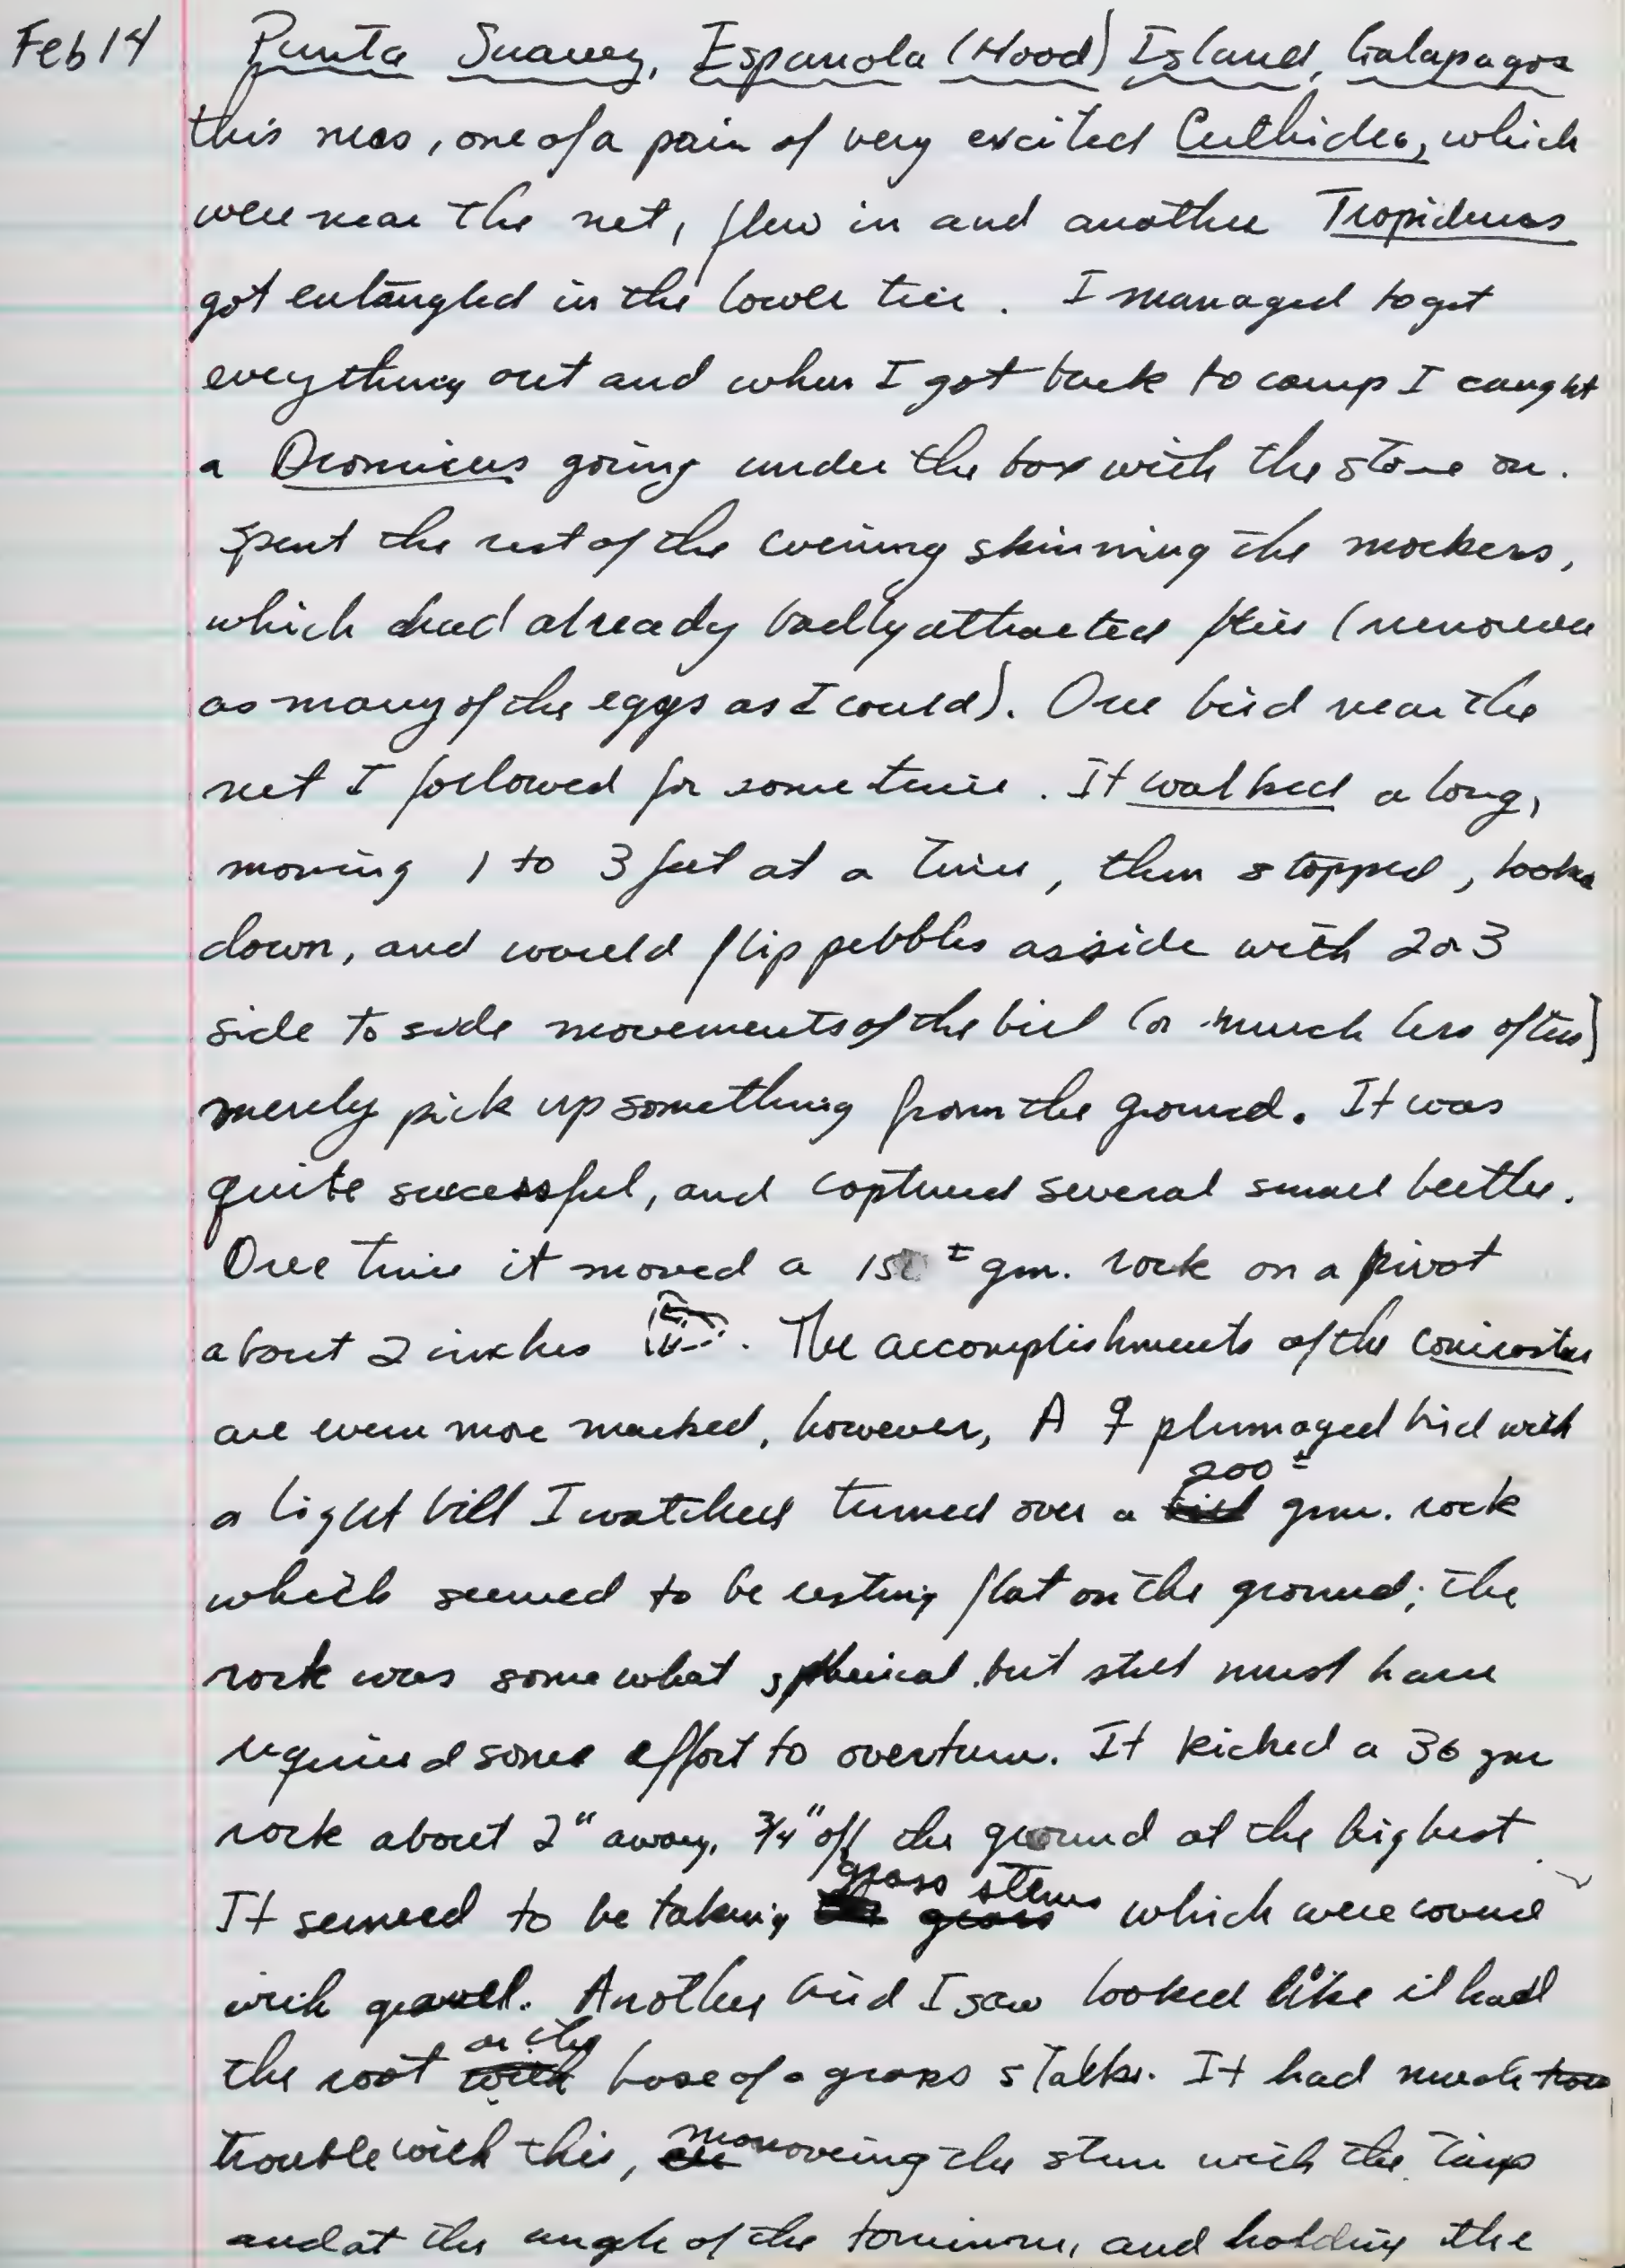 Feb 14 Punta Suarez, Espanola (Hood) Island, Galapagos
this mess, one of a pair of very excited Certhidea, which
were near the net, flew in and another Tropidurus
got entangled in the lower tier. I managed to get
everything out and when I got back to camp I caught
a Dromicus going under the box with the stove on.
Spent the rest of the evening skinning the mockers,
which had already badly attracted flies (remove
as many of the eggs as I could). One bird near the
net I followed for some time. It walked along,
moving 1 to 3 feet at a time, then stopped, looked
down, and would flip pebbles asside with 2 or 3
side to side movements of the bill (or much less often)
merely pick up something from the ground. It was
quite successful, and captured several small beetles.
One time it moved a 150± gm. rock on a pivot
about 2 inches. The accomplishments of the conirostris
are even more marked, however, A ♀ plumaged bird with
a light bill I watched turned over a 200± gm. rock
which seemed to be resting flat on the ground; the
rock was somewhat spherical but still must have
required some effort to overturn. It kicked a 36 gm
rock about 2" away, 3/4" off the ground at the highest.
It seemed to be taking grass stems which were covered
with gravel. Another bird I saw looked like it had
the root or the base of a grass stalk. It had much
trouble with this, manoveing the stem with the tips
and at the angle of the tomium, and holding the